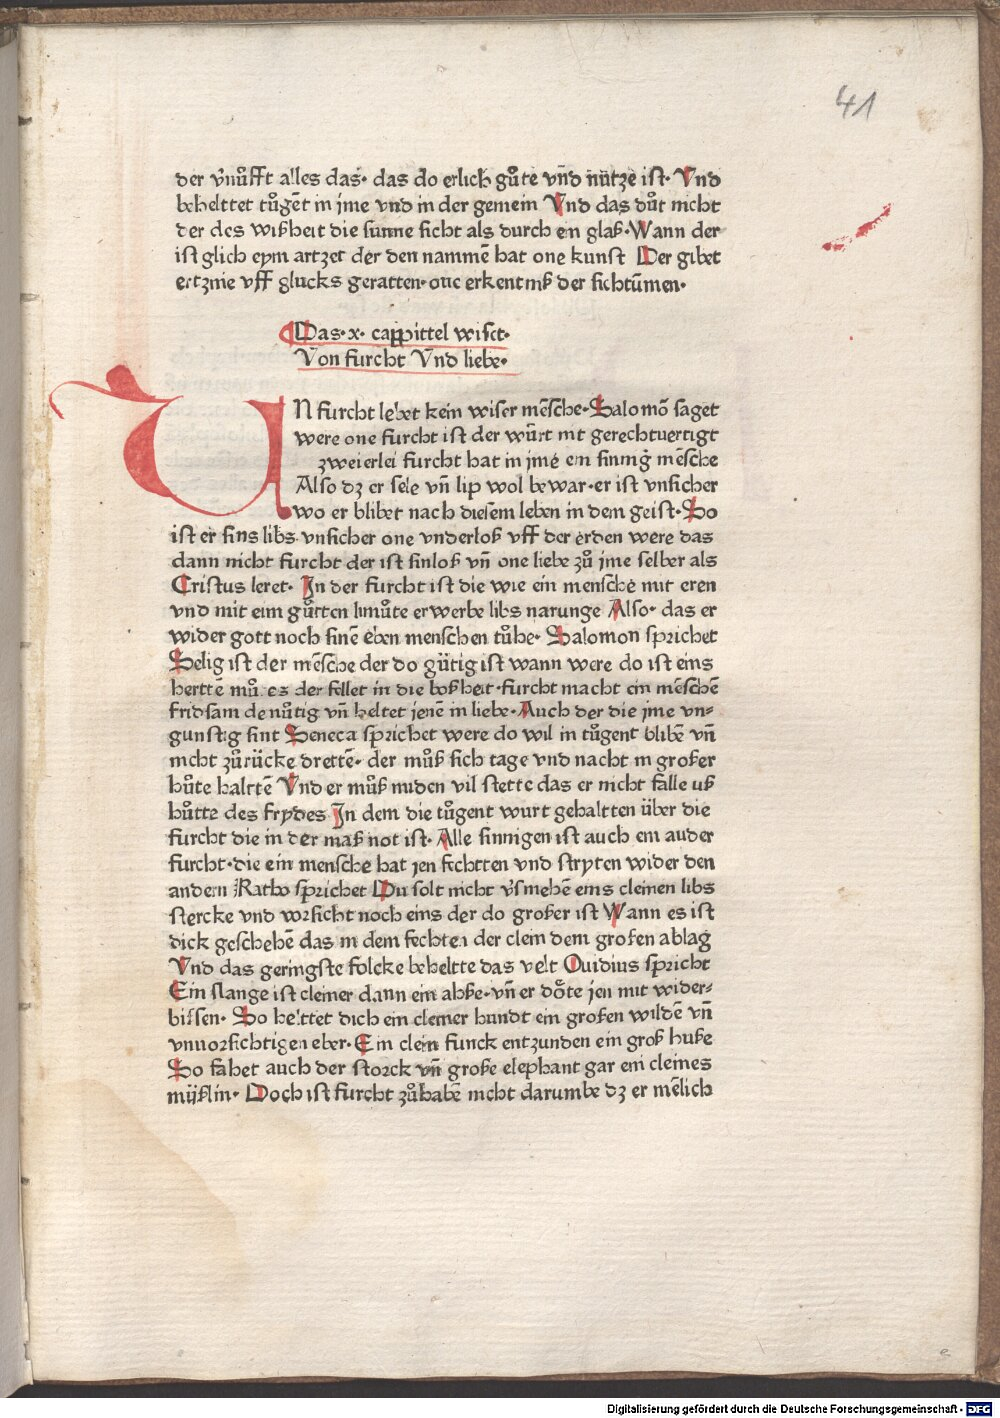 41
der v̄nuͦfft alles das· das do erlich guͦte vn̄d nutze ist· Vnd
beheltet tuͦgēt in jme vnd in der gemein Vnd das duͦt nicht
der des wißheit die sunne sicht als durch en glaß· Wann der
ist glich eym artzet der den nammē hat one kunst Der gibet
ertznie vff glucks geratten· one erkentniß der sichtuͦmen·
Das· x· cappittel wiset·
Von furcht Vnd liebe·
UN furcht lebet kein wiser mēsche· Salomō saget
were one furcht ist der wuͦrt nit gerechtuertigt
zweierlei furcht hat in jme ein sinnig mēsche
Also dz er sele vn̄ lip wol bewar· er ist vnsicher
wo er blibet nach diesem leben in dem geist· So
ist er sins libs vnsicher one vnderloß vff der erden were das
dann nicht furcht der ist sinloß vn̄ one liebe zuͦ jme selber als
Cristus leret· In der furcht ist die wie ein mensche mit eren
vnd mit eim guͦtten limuͦte erwerbe libs narunge Also· das er
wider gott noch sinē eben menschen tuͦhe· Salomon sprichet
Selig ist der mēsche der do gütig ist wann were do ist eins
herttē muͦ es der fellet in die boßheit· furcht macht ein mēschē
fridsam demuͦtig vn̄ heltet jenē in liebe· Auch der die jme vn-
gunstig sint Seneca sprichet were do wil in tuͦgent blibē vn̄
nicht zuͦrücke drettē· der muͦß sich tage vnd nacht in großer
huͦte halttē Vnd er muͦß miden vil stette das er nicht falle uß
huͦtte des frydes In dem die tuͦgent wurt gehaltten über die
furcht die in der maß not ist· Alle sinnigen ist auch ein ander
furcht· die ein mensche hat jen fechtten vnd stryten wider den
andern Katho sprichet Du solt nicht v̄smehē eins cleinen libs
stercke vnd vorsicht noch eins der do großer ist Wann es ist
dick geschehē das in dem fechten der clein dem großen ablag
Vnd das geringste folcke beheltte das velt Ouidius spricht
Ein slange ist cleiner dann ein ahße· vn̄ er doͤte jen mit wider-
bissen· So helttet dich ein cleiner hundt ein großen wildē vn̄
vnuorsichtigen eber· Ein clein funck entzunden ein groß huße
So fahet auch der storck vn̄ große elephant gar ein cleines
müßlin· Doch ist furcht zuͦhabē nicht darumbe dz er mēlich
e
Digitalisierung gefördert durch die Deutsche Forschungsgemeinschaft - DFG